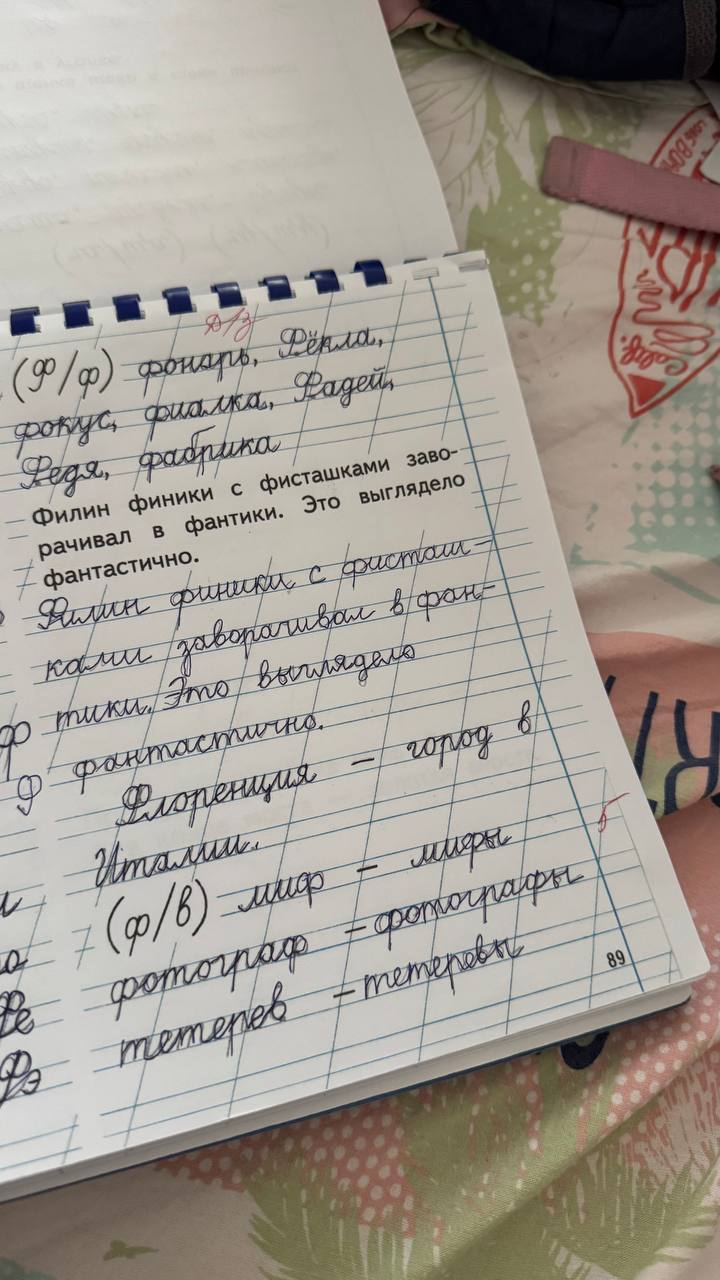 д/з
(Ф/ф) фонарь, Фёкла,
фокус, фиалка, Фадей,
Федя, фабрика
Филин финики с фисташками заво-
рачивал в фантики. Это выглядело
фантастично.
Филин финики с фисташ-
ками заворачивал в фан-
тики. Это выглядело
фантастично.
Флоренция – город в
Италии.
(ф/в) миф – мифы
фотограф – фотографы
тетерев – тетеревы
89
ф
Ф
Фе
Фэ